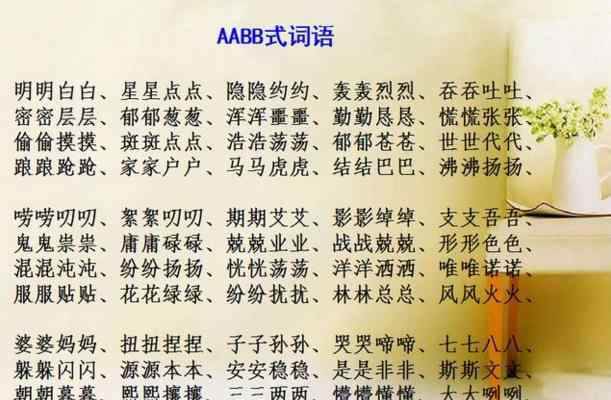 AABB式词语
明明白白、星星点点、隐隐约约、轰轰烈烈、吞吞吐吐、
密密层层、郁郁葱葱、浑浑噩噩、勤勤恳恳、慌慌张张、
偷偷摸摸、斑斑点点、浩浩荡荡、郁郁苍苍、世世代代、
踉踉跄跄、家家户户、马马虎虎、结结巴巴、沸沸扬扬、
唠唠叨叨、絮絮叨叨、期期艾艾、影影绰绰、支支吾吾、
鬼鬼祟祟、庸庸碌碌、兢兢业业、战战兢兢、形形色色、
混混沌沌、纷纷扬扬、恍恍荡荡、洋洋洒洒、唯唯诺诺、
服服贴贴、花花绿绿、纷纷扰扰、林林总总、风风火火、
婆婆妈妈、扭扭捏捏、子子孙孙、哭哭啼啼、七七八八、
躲躲闪闪、源源本本、安安稳稳、是是非非、斯斯文文、
朝朝暮暮、熙熙攘攘、三三两两、懵懵懂懂、大大咧咧、